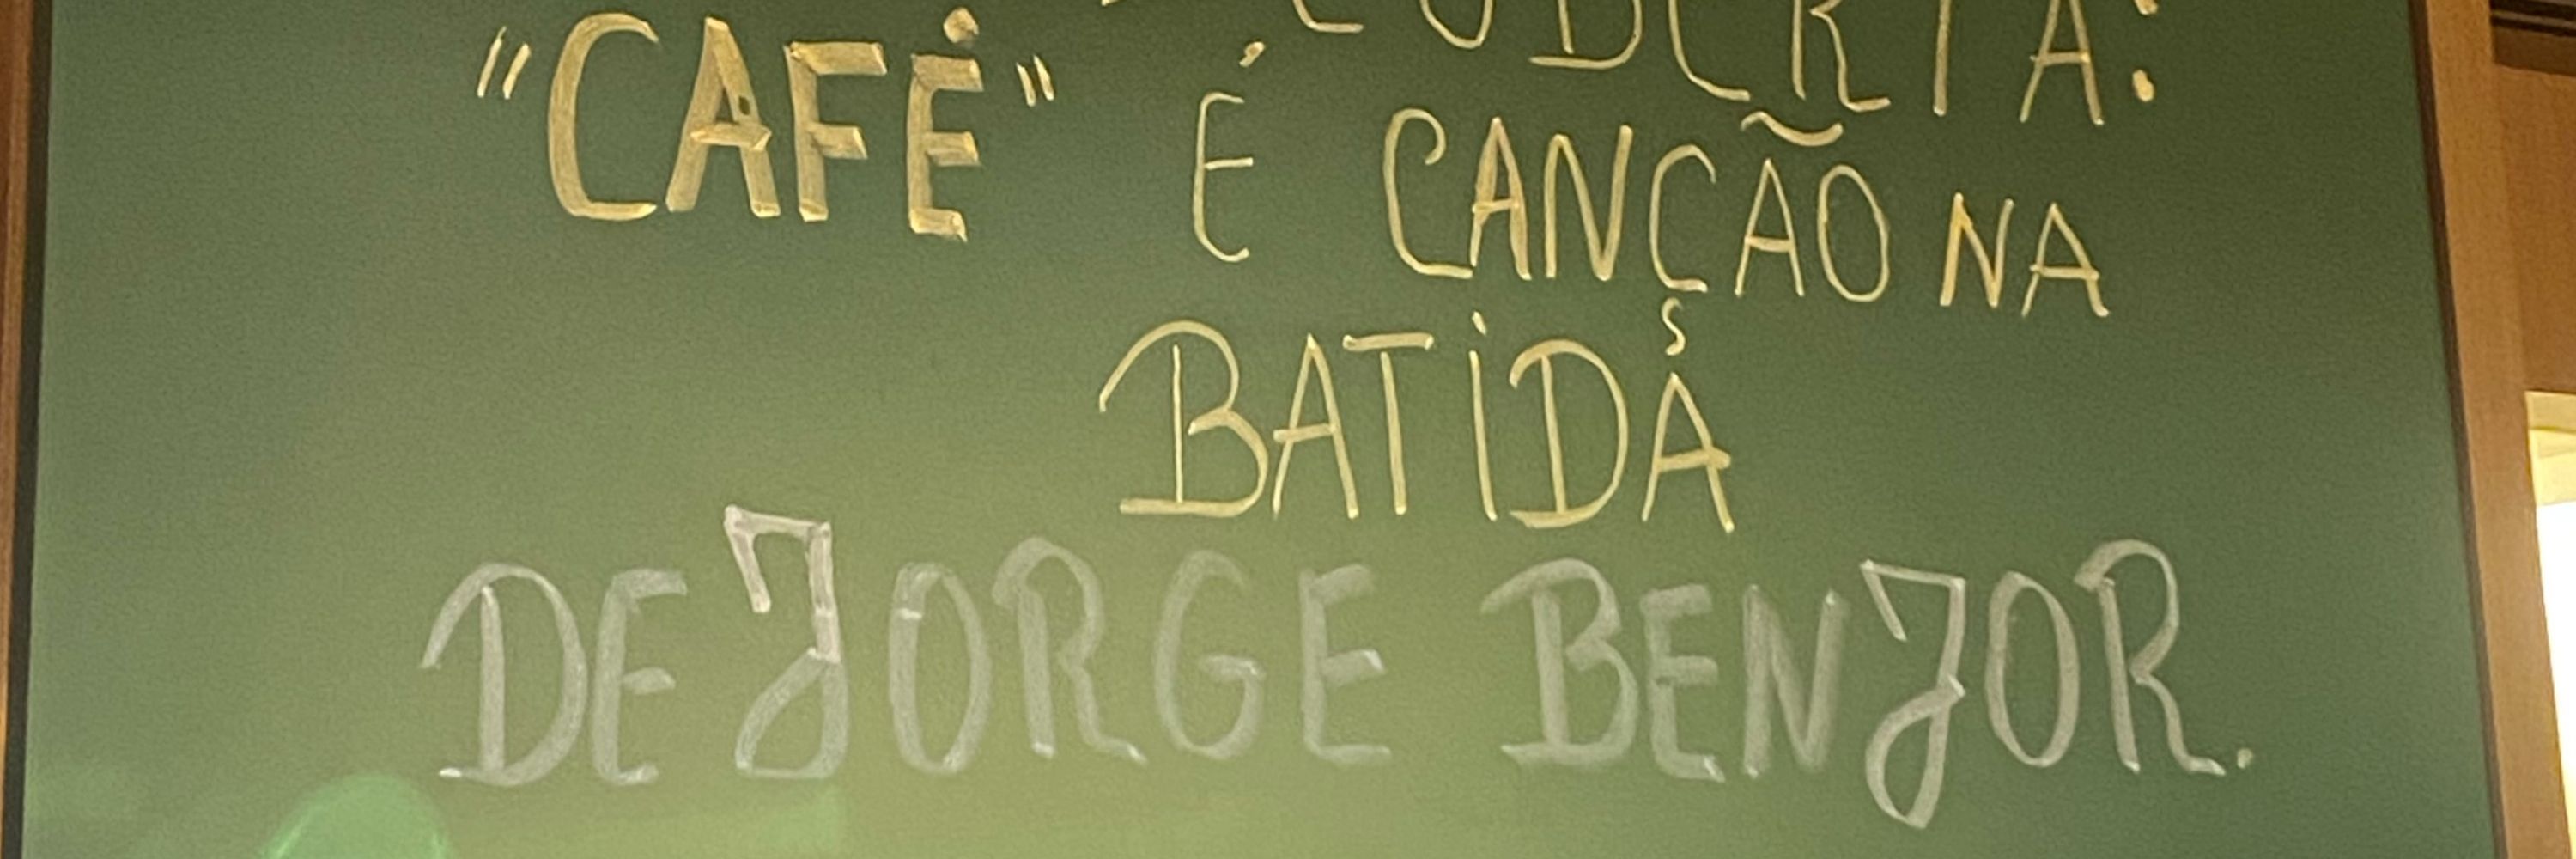 "CAFÉ" É CANÇÃO NA
BATIDA
DE JORGE BENJOR.